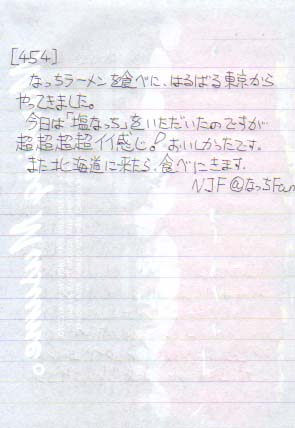 [454]
なっちラーメンを食べに、はるばる東京から
やってきました。
今日は「塩なっち」をいただいたのですが
超超超超イイ感じ。おいしかったです。
また北海道に来たら、食べにきます。
NJF@なっちFan